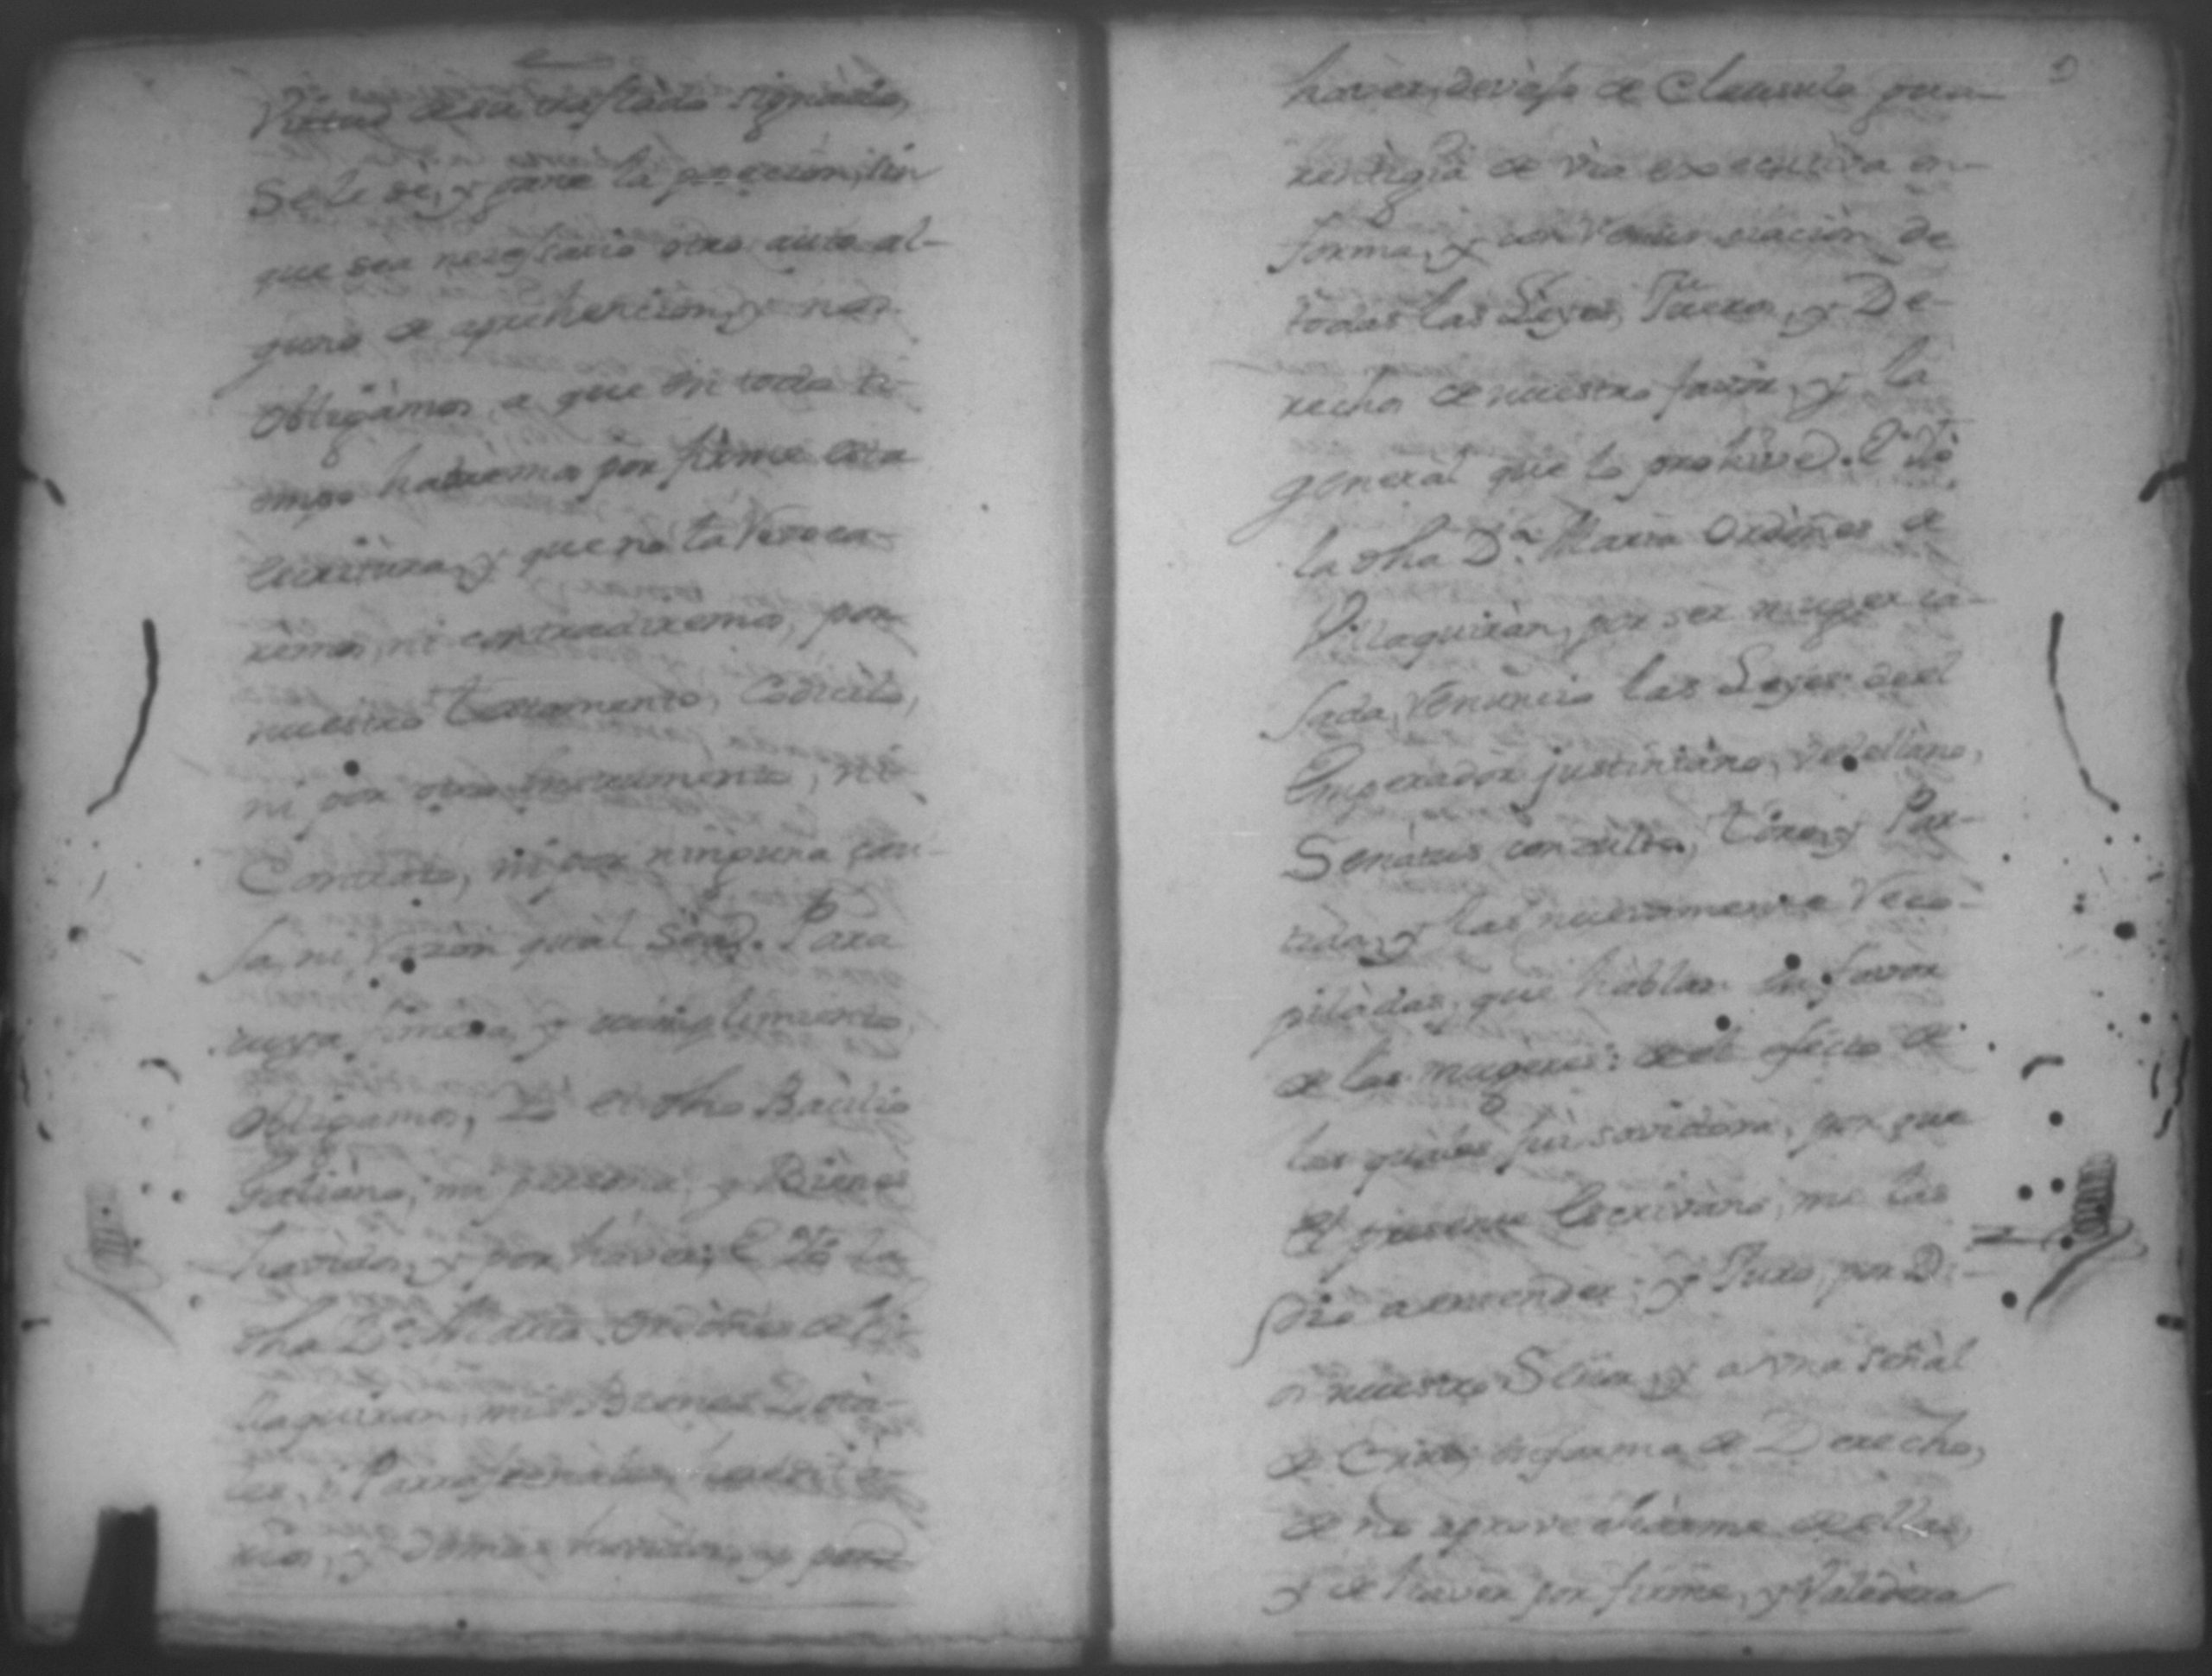 Virtud de su traslado signado,
Se le dè, y pare la posecion, sin
que sea nesessario otro auto al-
guno de aprehencion, y nos
obligàmos, a que en todo ti-
empo habremos por firme esta
escritura, y que no la Revoca-
rèmos, ni contradiremos, por
nuestro Testamento, Codicilo,
ni por otro Instrumento, ni
Contrato, ni por ninguna cau-
sa, ni Razon qual sëa. Para
cuya firmeza, y cumplimiento
obligamos, Yo el dho Bacilio
Galiàno, mi persona, y Bienes
havidos, y por haver; E Yò la
dha Dª. Maria Ordòñes de Vi-
llaquiran, mis Bienes Dota-
les, i Parafernales,
rios, y demas havidos, y por
haver, devajo de Clausula gua-
rentigia de via executiva en
forma, y con Renunsiaciòn de
todas las Leyes, Fueros, y De-
rechos de nuestro favor, y la
general que lo prohive. E Yò
la dha Dª. Maria Ordòñes de
Villaquiràn, por ser muger ca-
sada, Renùncio las Leyes del
Emperador justiniàno, Vèlellàno,
Senàtus consulto, Tòro, y Par-
tida, y las nuevamente Reco-
pilàdas, que hablan en favor
de las mugeres: del efecto de
las quales fui savidora, por que
el presente Escrivàno, me las
diò a entender; y Juro por Di-
os nuestro Señor, y a una señal
de Cruz, en forma de Derecho,
de no aprovechàrme de ellas,
y de haver por firme, y Valedera